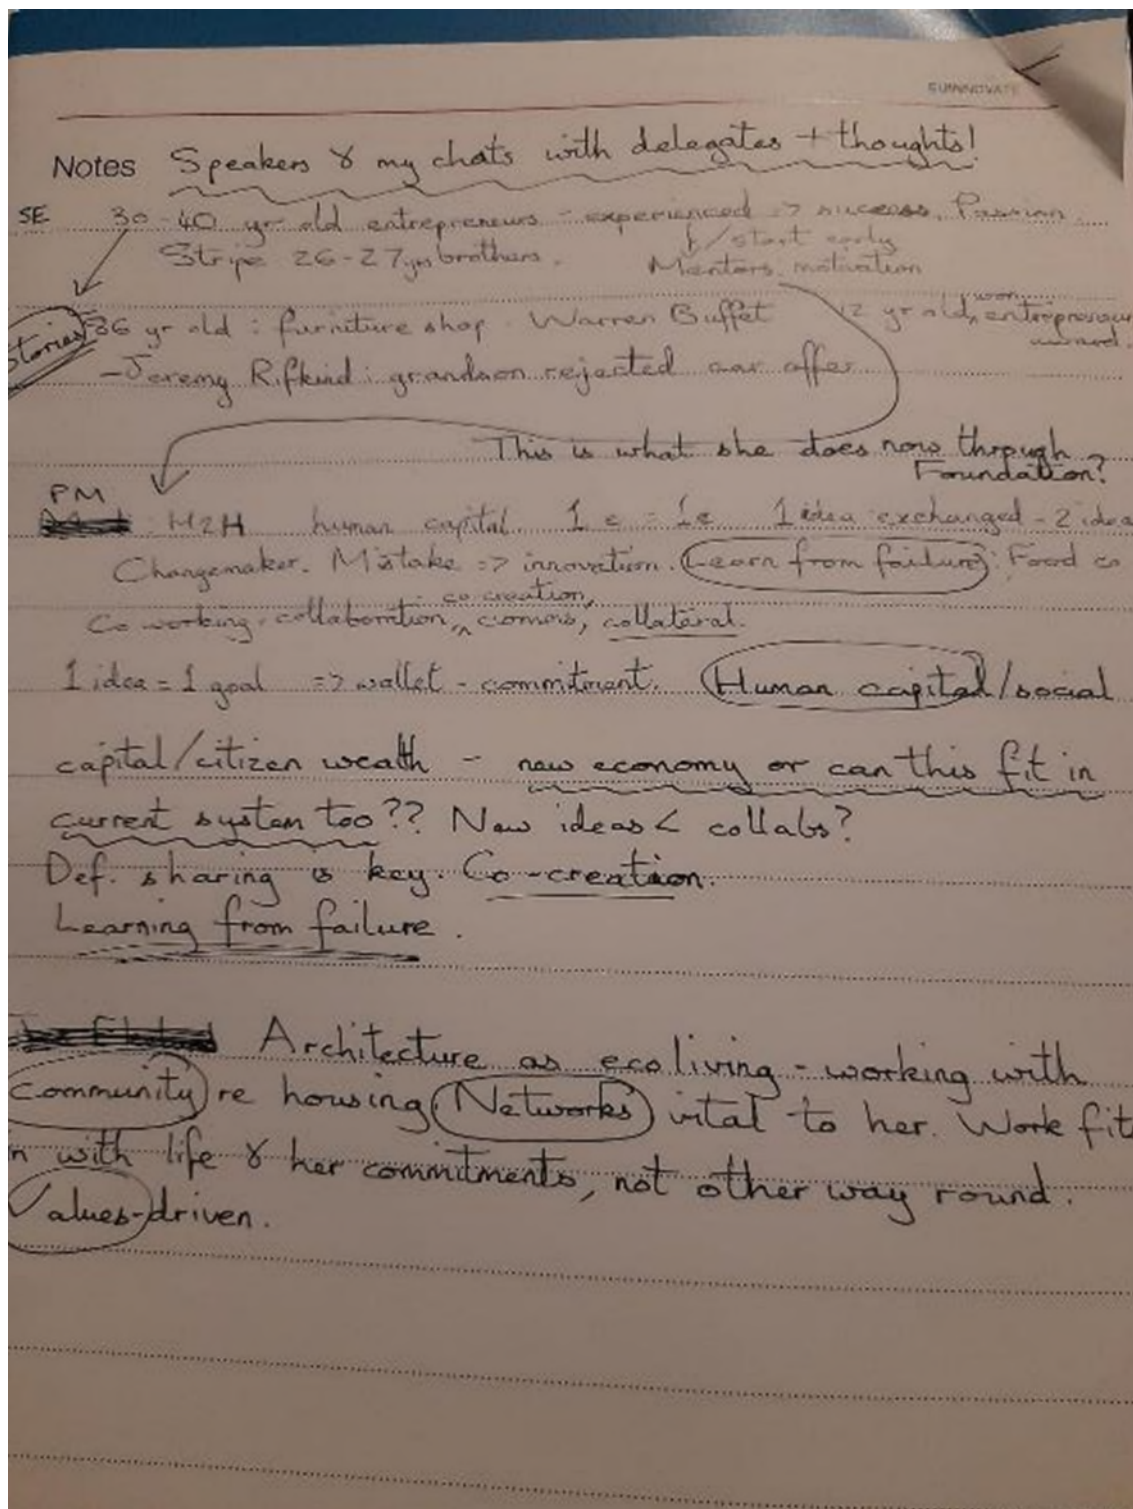 EUINNOVATE
Notes Speakers & my chats with delegates + thoughts!
SE 30-40 yr old entrepreneurs - experienced => success. Passion
Stripe 26-27yrs brothers. /start early
Mentors motivation
Stories 86 yr old : furniture shop. Warren Buffet 12 yr old won entrepreneur award.
- Jeremy Rifkind : grandson rejected car offer
This is what she does now through
Foundation?
PM
: H2H human capital. 1 e = 1e 1 idea exchanged - 2 idea
Changemaker. Mistake => innovation. Learn from failure : Food co
co creation,
Co working, collaboration, commons, collateral.
1 idea = 1 goal => wallet - commitment. Human capital/social
capital/citizen wealth - new economy or can this fit in
current system too?? New ideas < collabs?
Def. sharing is key. Co-creation.
Learning from failure.
Architecture as eco living - working with
Community re housing. Networks vital to her. Work fit
n with life & her commitments, not other way round.
Values-driven.